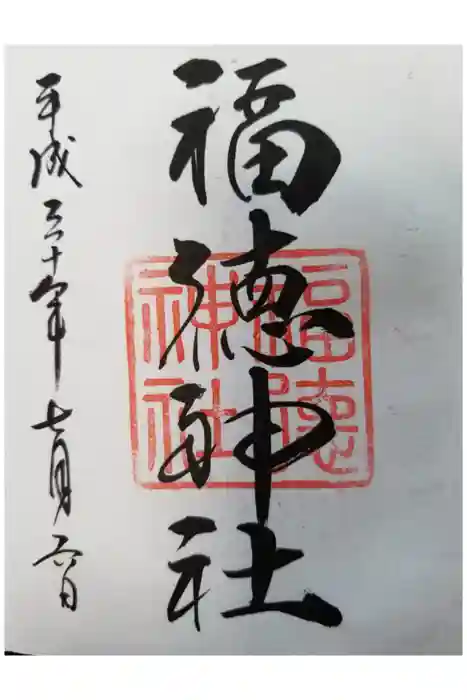 福徳神社
福德神社
平成三十年七月六日